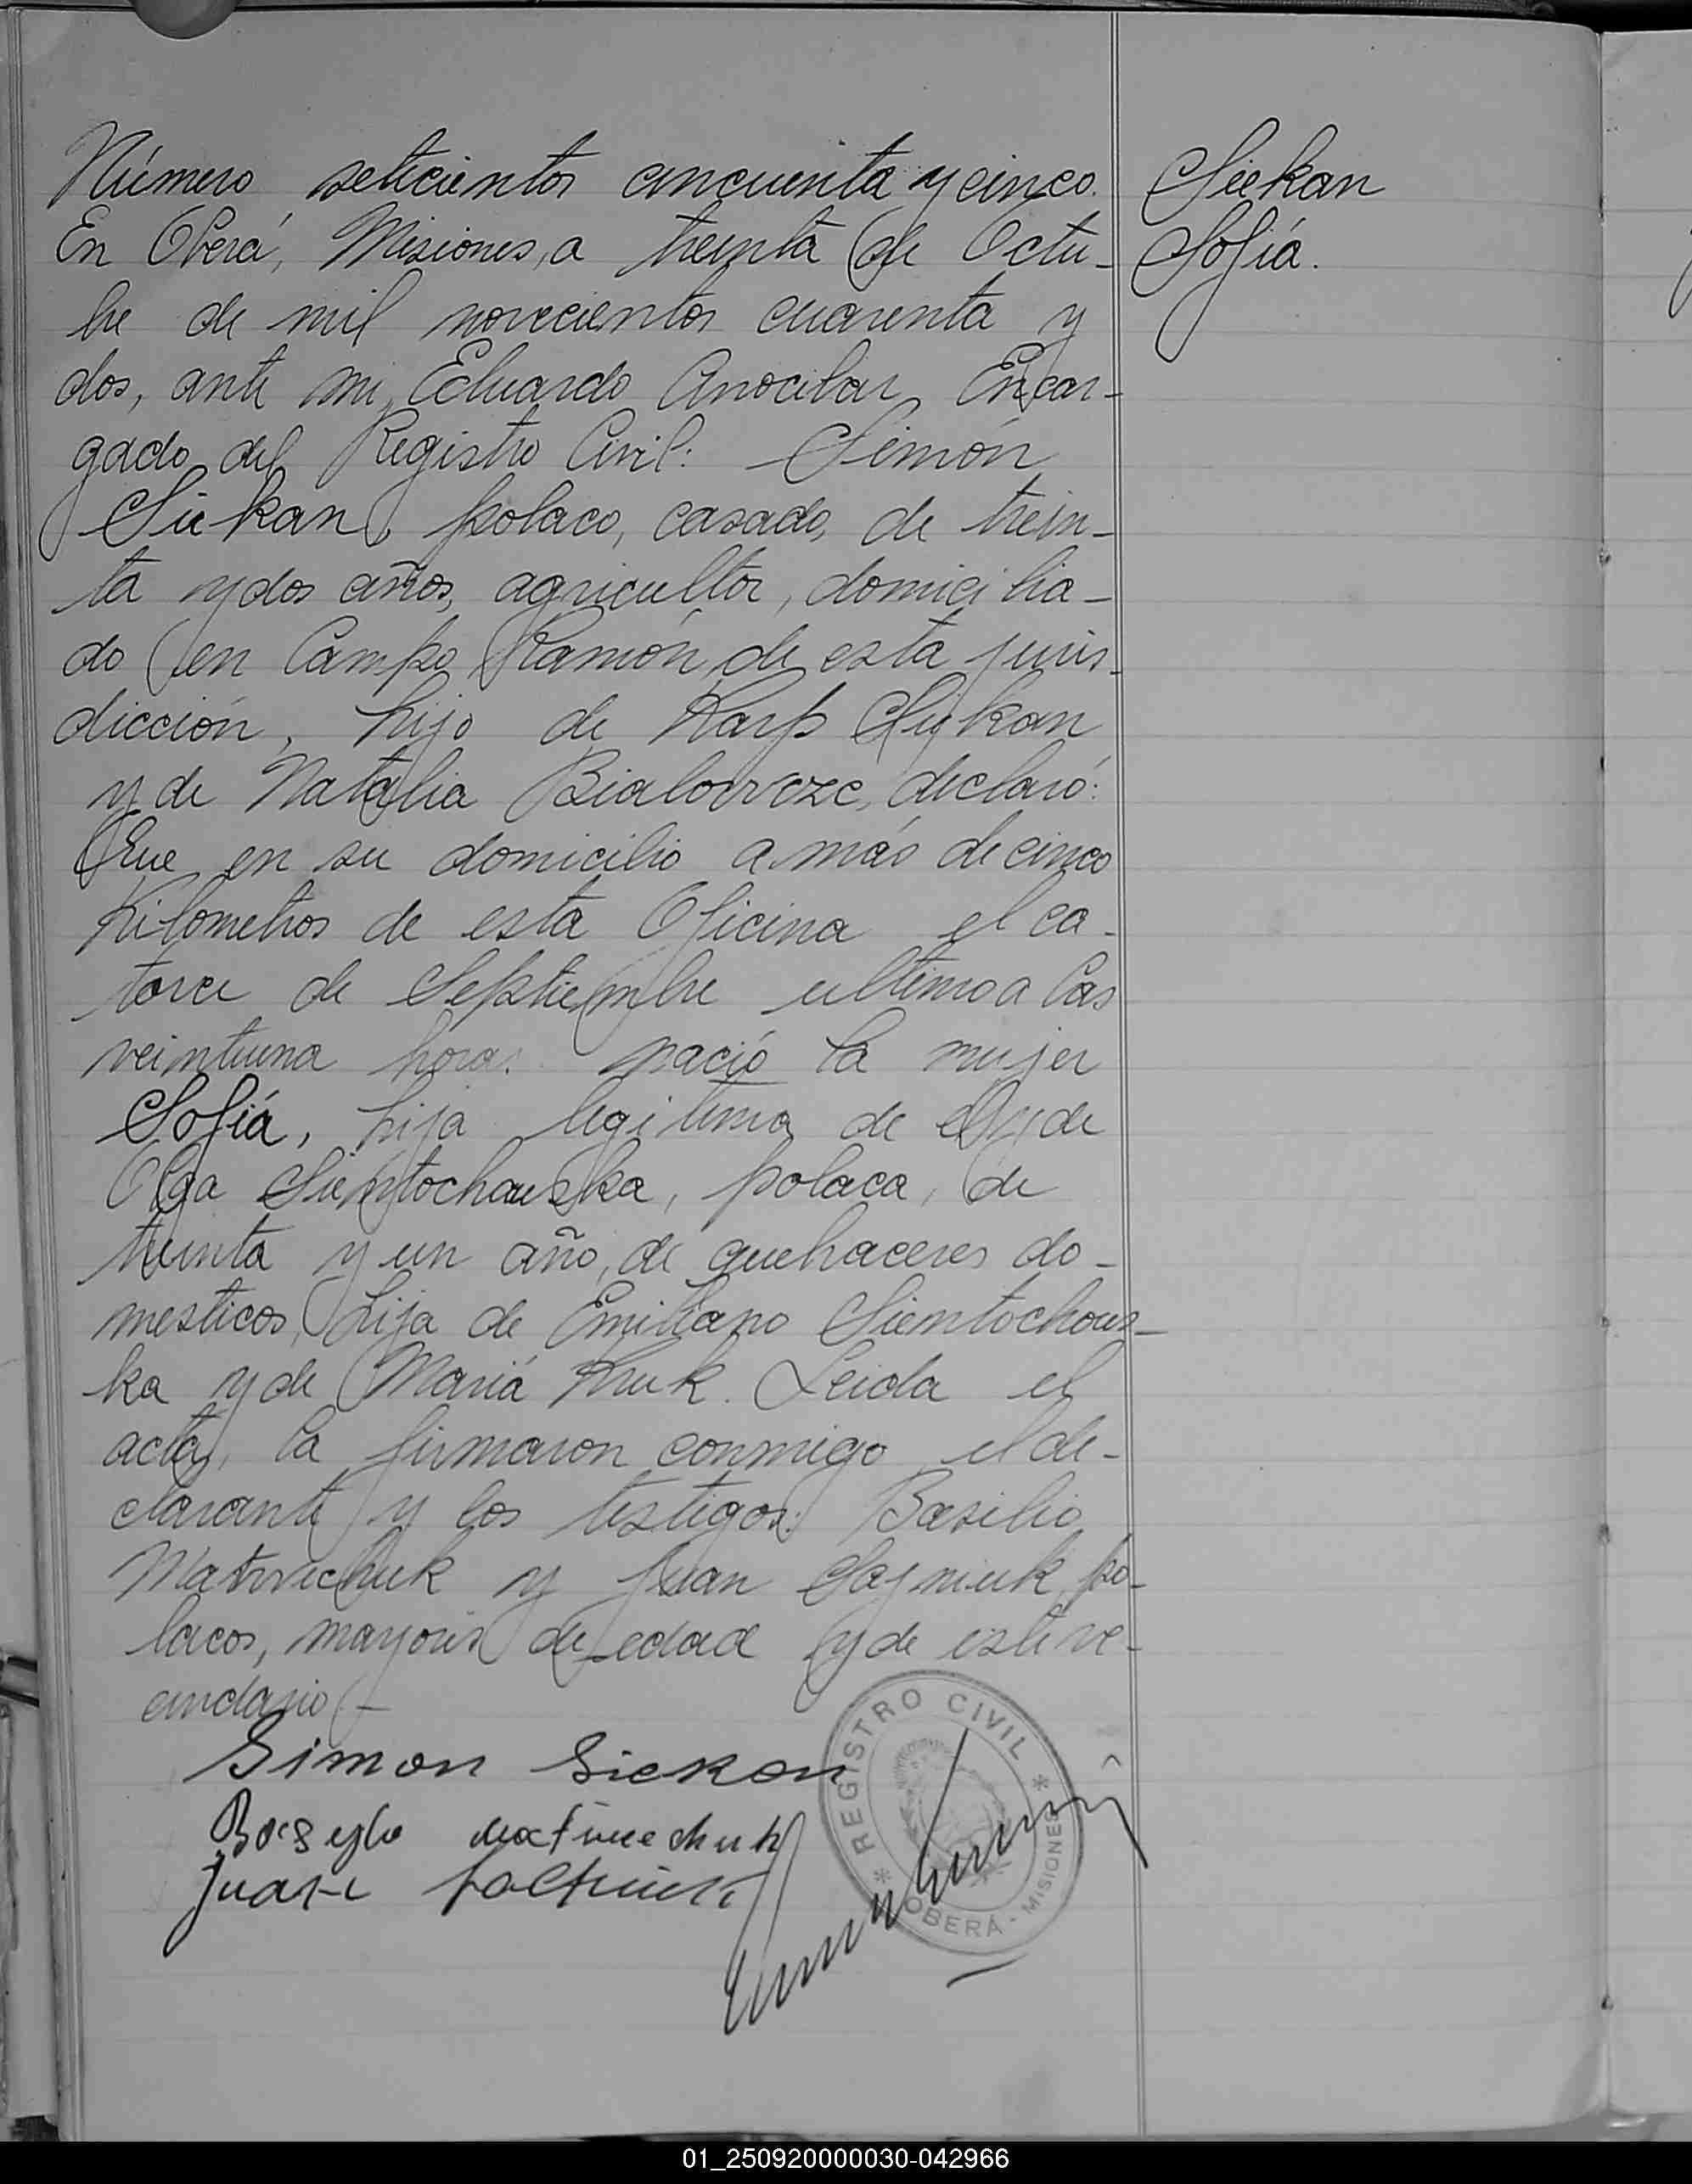 Número setecientos cincuenta y cinco.
En Oberá, Misiones, a treinta de Octu-
bre de mil novecientos cuarenta y
dos, ante mi, Eduardo Anocibar, Encar-
gado del Registro Civil: Simón
Siekan, polaco, casado, de trein-
ta y dos años, agricultor, domicilia-
do en Campo Ramón, de esta juris-
dicción, hijo de Karp Siekan
y de Natalia declaró:
Que en su domicilio a más de cinco
Kilometros de esta Oficina el ca-
torce de Septiembre ultimo a las
veintiuna horas nació la mujer
Sofía, hija legitima de el y de
Olga Sientochouska, polaca, de
treinta y un año, de quehaceres do-
mesticos, hija de Emiliano Sientochous-
ka y de Maria Kruk. Leida el
acta, la firmaron conmigo el de-
clarante y los testigos: Basilio
Matwiechuk y Juan po-
lacos, mayores de edad y de este ve-
cindario.-
Siekan
Sofía.
Simon Siekan
Juan
REGISTRO CIVIL
* OBERÁ - MISIONES *
01_250920000030-042966